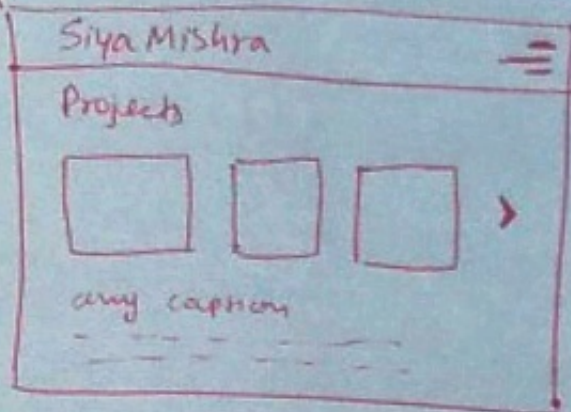 Siya Mishra
Projects
any caption